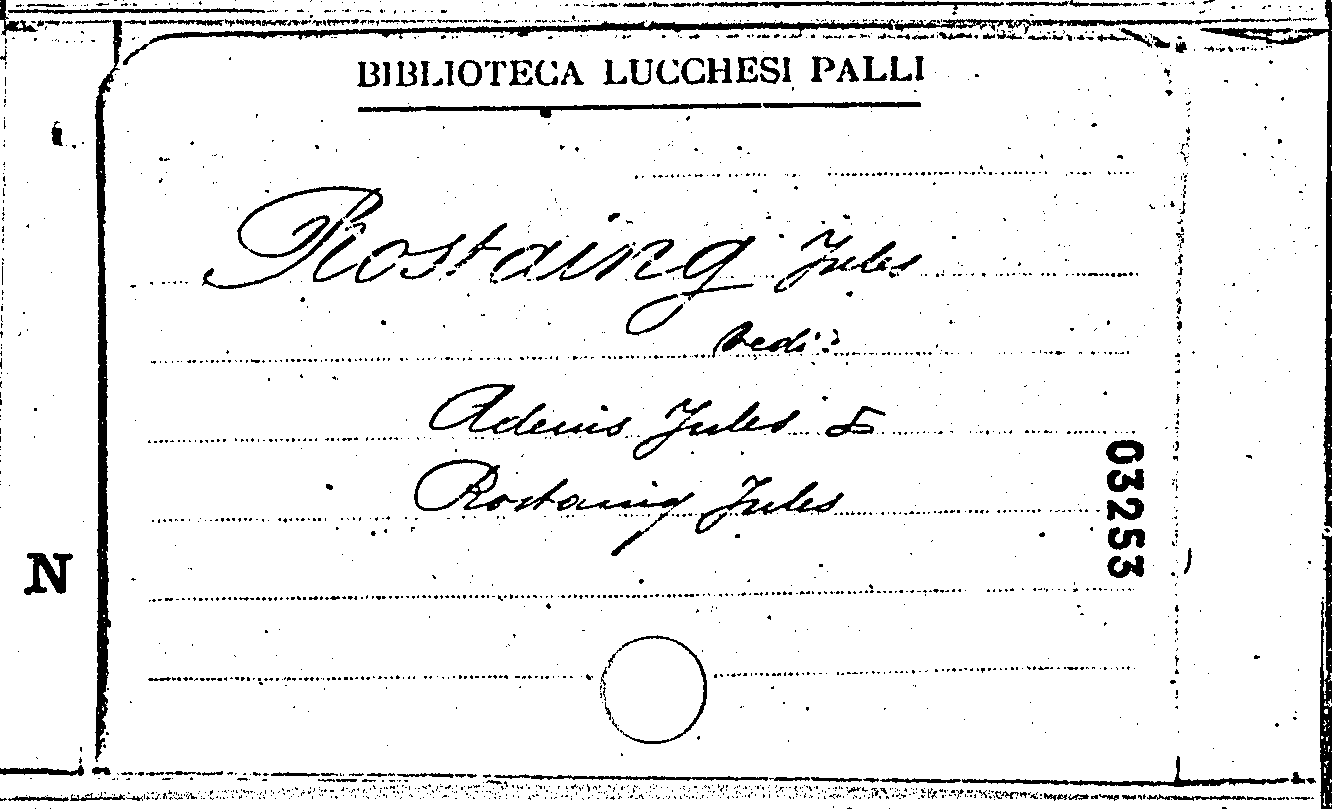 BIBLIOTECA LUCCHESI PALLI
Rostaing Jules
vedi:
Adenis Jules &
Rostaing Jules
03253
N